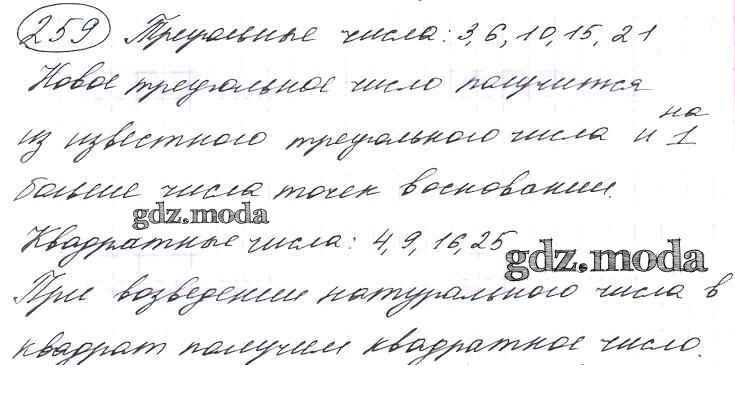 259 Треугольные числа: 3, 6, 10, 15, 21
Новое треугольное число получится
из известного треугольного числа и на 1
больше числа точек в основании.
gdz.moda
Квадратные числа: 4, 9, 16, 25
gdz.moda
При возведении натурального числа в
квадрат получим квадратное число.